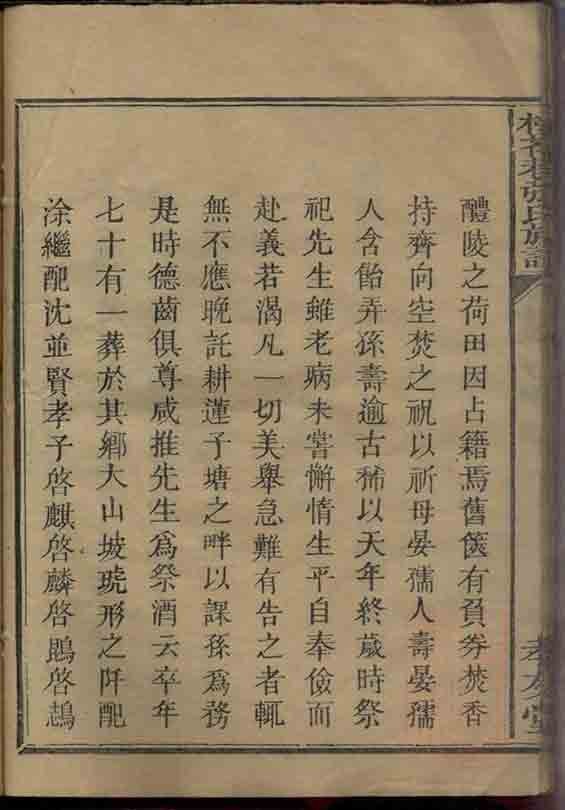 醴陵之荷田因占籍焉舊篋有負券焚香
持齊向空焚之祝以祈母晏孺人壽晏孺
人含飴弄孫壽逾古稀以天年終歲時祭
祀先生雖老病未嘗懈惰生平自奉儉而
赴義若渴凡一切美舉急難有告之者輒
無不應晚託耕蓮子塘之畔以課孫為務
是時德齒俱尊咸推先生為祭酒云卒年
七十有一葬於其鄉大山坡琥形之阡配
涂繼配沈並賢孝子啓麒啓麟啓鵾啓鵠